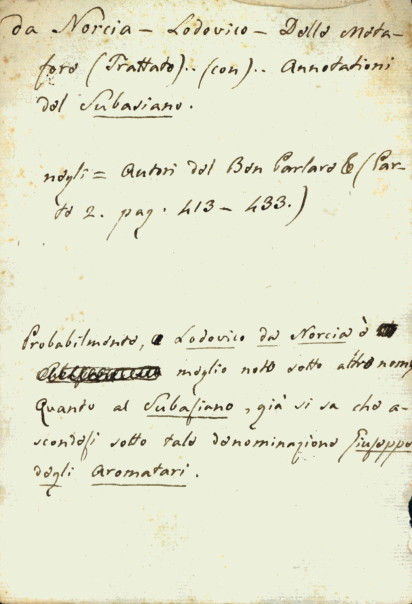 da Norcia - Lodovico - Delle Meta-
fore (Trattato).. (con).. Annotationi
del Subasiano.
negli = Autori del Ben Parlare & (Par-
te 2. pag. 413 - 433.)
Probabilmente, Lodovico da Norcia è
meglio noto sotto altro nome
Quanto al Subasiano, già si sa che a-
scondesi sotto tale denominazione Giuseppe
degli Aromatari.